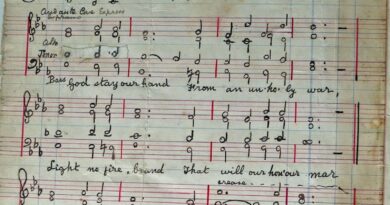 Andante Con Express
Soprano
Alto
Tenor
Bass God stay our hand From an un-ho-ly war,
Light no fire, brand That will our honour mar
crease